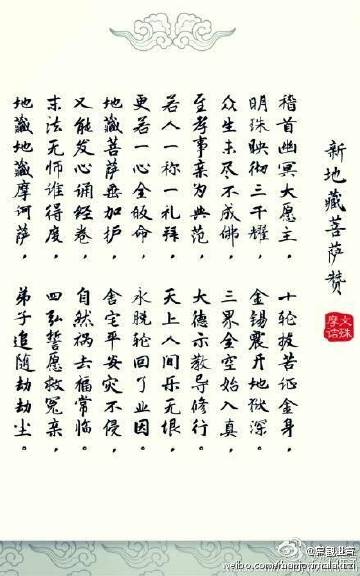 新地藏菩萨赞
稽首幽冥大愿主，十轮拔苦证金身，
明珠映彻三千耀，金锡震开地狱深。
众生未尽不成佛，三界全空始入真，
至孝事亲为典范，大德示教导修行。
若人一称一礼拜，天上人间乐无垠，
更若一心全皈命，永脱轮回了业因。
地藏菩萨垂加护，舍宅平安灾不侵，
又能发心诵经卷，自然祸去福常临。
末法无师谁得度，四弘誓愿救冤亲，
地藏地藏摩诃萨，弟子追随劫劫尘。
文殊
摩诘